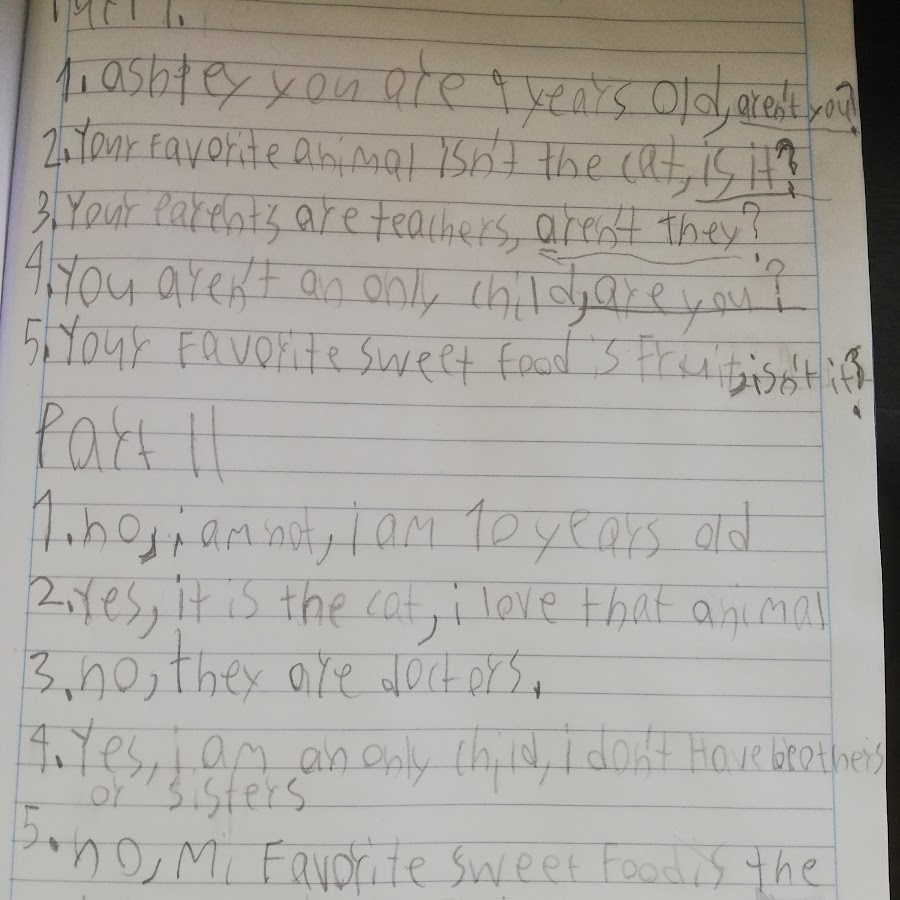 Part 1.
1. ashley you are 9 years old, aren't you?
2. Your Favorite animal isn't the cat, is it?
3. Your Parents are teachers, aren't they?
4. You aren't an only child, are you?
5. Your Favorite sweet food is Fruit, isn't it?
Part II
1. no, i am not, i am 10 years old
2. Yes, it is the cat, i love that animal
3. no, they are doctors.
4. Yes, i am an only child, i don't Have brothers
or sisters
5. no, Mi Favorite sweet Food is the